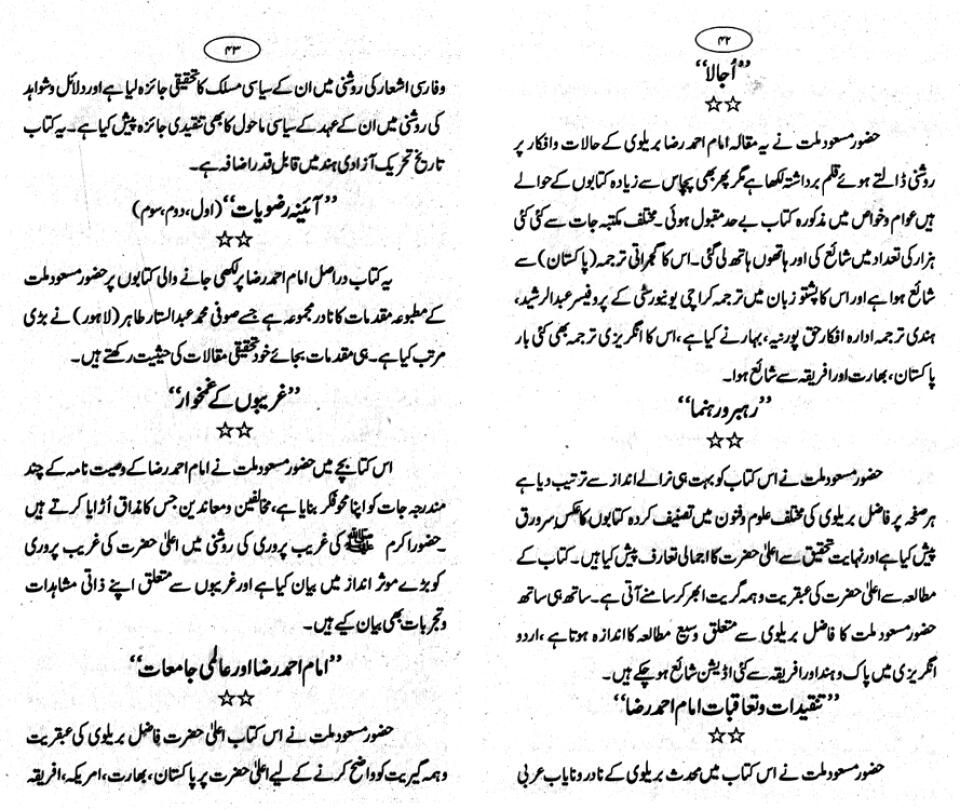 ۴۲
”اُجالا“
☆☆
حضور مسعود ملت نے یہ مقالہ امام احمد رضا بریلوی کے حالات و افکار پر
روشنی ڈالتے ہوئے قلم برداشتہ لکھا ہے مگر پھر بھی پچاس سے زیادہ کتابوں کے حوالے
ہیں عوام و خواص میں مذکورہ کتاب بے حد مقبول ہوئی۔ مختلف مکتبہ جات سے کئی کئی
ہزار کی تعداد میں شائع کی اور ہاتھوں ہاتھ لی گئی۔ اس کا گجراتی ترجمہ (پاکستان) سے
شائع ہوا ہے اور اس کا پشتو زبان میں ترجمہ کراچی یونیورسٹی کے پروفیسر عبدالرشید،
ہندی ترجمہ ادارہ افکار حق پورنیہ، بہار نے کیا ہے، اس کا انگریزی ترجمہ بھی کئی بار
پاکستان، بھارت اور افریقہ سے شائع ہوا۔
”رہبر و رہنما“
☆☆
حضور مسعود ملت نے اس کتاب کو بہت ہی نرالے انداز سے ترتیب دیا ہے
ہر صفحہ پر فاضل بریلوی کی مختلف علوم و فنون میں تصنیف کردہ کتابوں کا عکس سرورق
پیش کیا ہے اور نہایت تحقیق سے اعلیٰ حضرت کا اجمالی تعارف پیش کیا ہیں۔ کتاب کے
مطالعہ سے اعلیٰ حضرت کی عبقریت و ہمہ گریت ابھر کر سامنے آتی ہے۔ ساتھ ہی ساتھ
حضور مسعود ملت کا فاضل بریلوی سے متعلق وسیع مطالعہ کا اندازہ ہوتا ہے، اردو
انگریزی میں پاک و ہند اور افریقہ سے کئی اڈیشن شائع ہو چکے ہیں۔
”تنقیدات و تعاقبات امام احمد رضا“
☆☆
حضور مسعود ملت نے اس کتاب میں محدث بریلوی کے نادر و نایاب عربی
۴۳
و فارسی اشعار کی روشنی میں ان کے سیاسی مسلک کا تحقیقی جائزہ لیا ہے اور دلائل و شواہد
کی روشنی میں ان کے عہد کے سیاسی ماحول کا بھی تنقیدی جائزہ پیش کیا ہے۔ یہ کتاب
تاریخ تحریک آزادی ہند میں قابل قدر اضافہ ہے۔
”آئینہ رضویات“ (اول، دوم، سوم)
☆☆
یہ کتاب دراصل امام احمد رضا پر لکھی جانے والی کتابوں پر حضور مسعود ملت
کے مطبوعہ مقدمات کا نادر مجموعہ ہے جسے صوفی محمد عبدالستار طاہر (لاہور) نے بڑی
مرتب کیا ہے۔ ہی مقدمات بجائے خود تحقیقی مقالات کی حیثیت رکھتے ہیں۔
”غریبوں کے غمخوار“
☆☆
اس کتابچے میں حضور مسعود ملت نے امام احمد رضا کے وصیت نامہ کے چند
مندرجہ جات کو اپنا محو فکر بنایا ہے، مخالفین و معاندین جس کا مذاق اُڑایا کرتے ہیں
۔حضور اکرم ﷺ کی غریب پروری کی روشنی میں اعلیٰ حضرت کی غریب پروری
کو بڑے موثر انداز میں بیان کیا ہے اور غریبوں سے متعلق اپنے ذاتی مشاہدات
و تجربات بھی بیان کیے ہیں۔
”امام احمد رضا اور عالمی جامعات“
☆☆
حضور مسعود ملت نے اس کتاب اعلیٰ حضرت فاضل بریلوی کی عبقریت
و ہمہ گیریت کو واضح کرنے کے لیے اعلیٰ حضرت پر پاکستان، بھارت، امریکہ، افریقہ